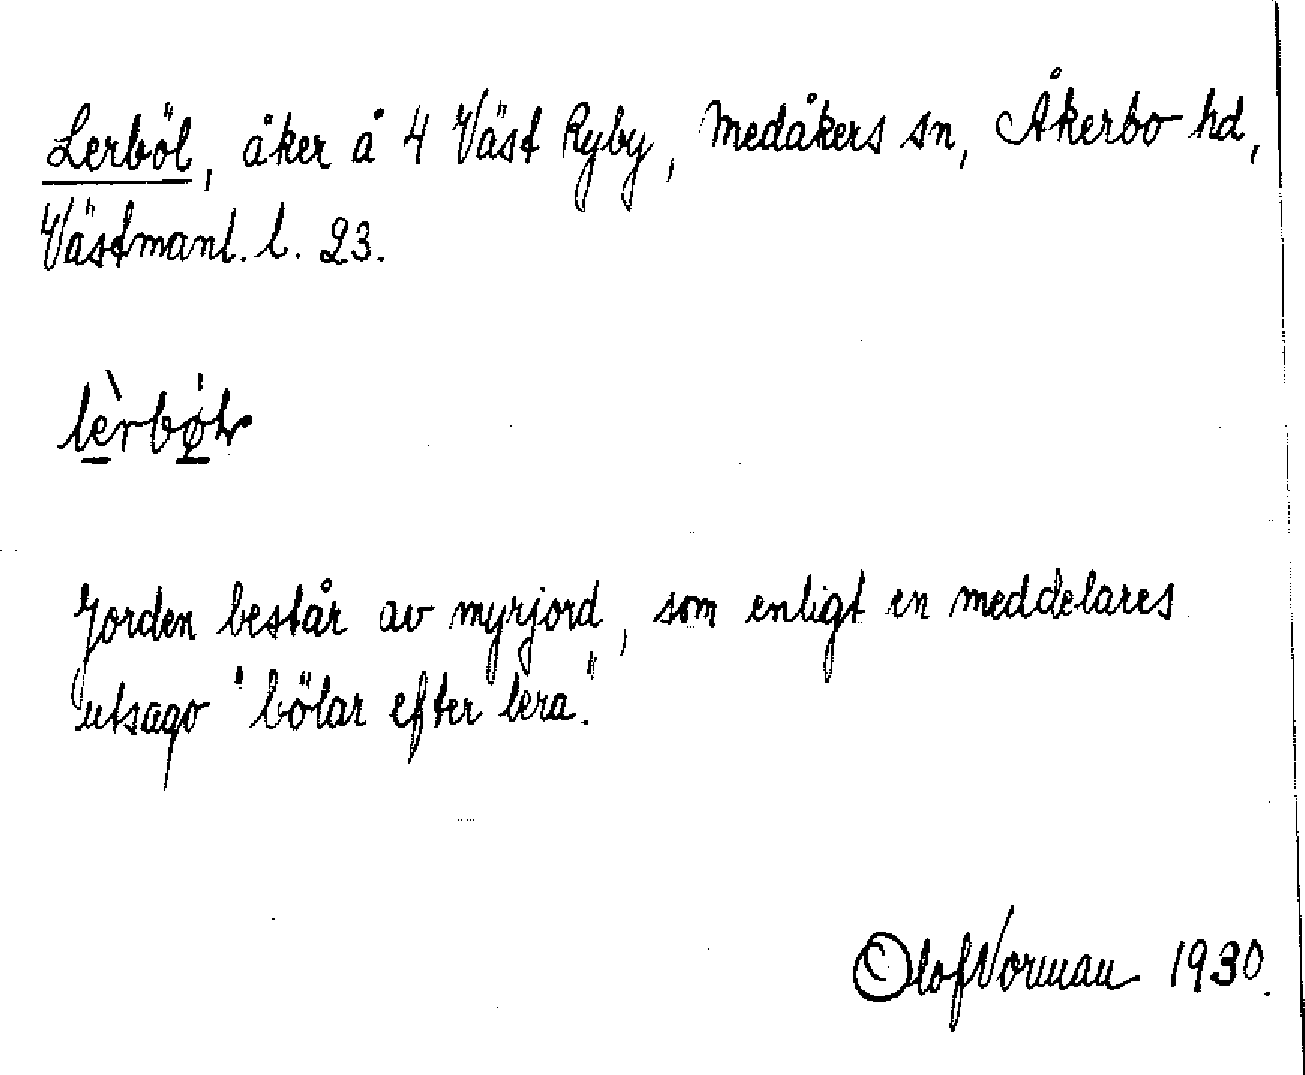 Lerböl, åker å 4 Väst Ryby, Medåkers sn, Åkerbo hd,
Västmanl. l. 23.
Jorden består av myrjord, som enligt en meddelares
utsago "bölar efter lera."
Olof Norman 1930.